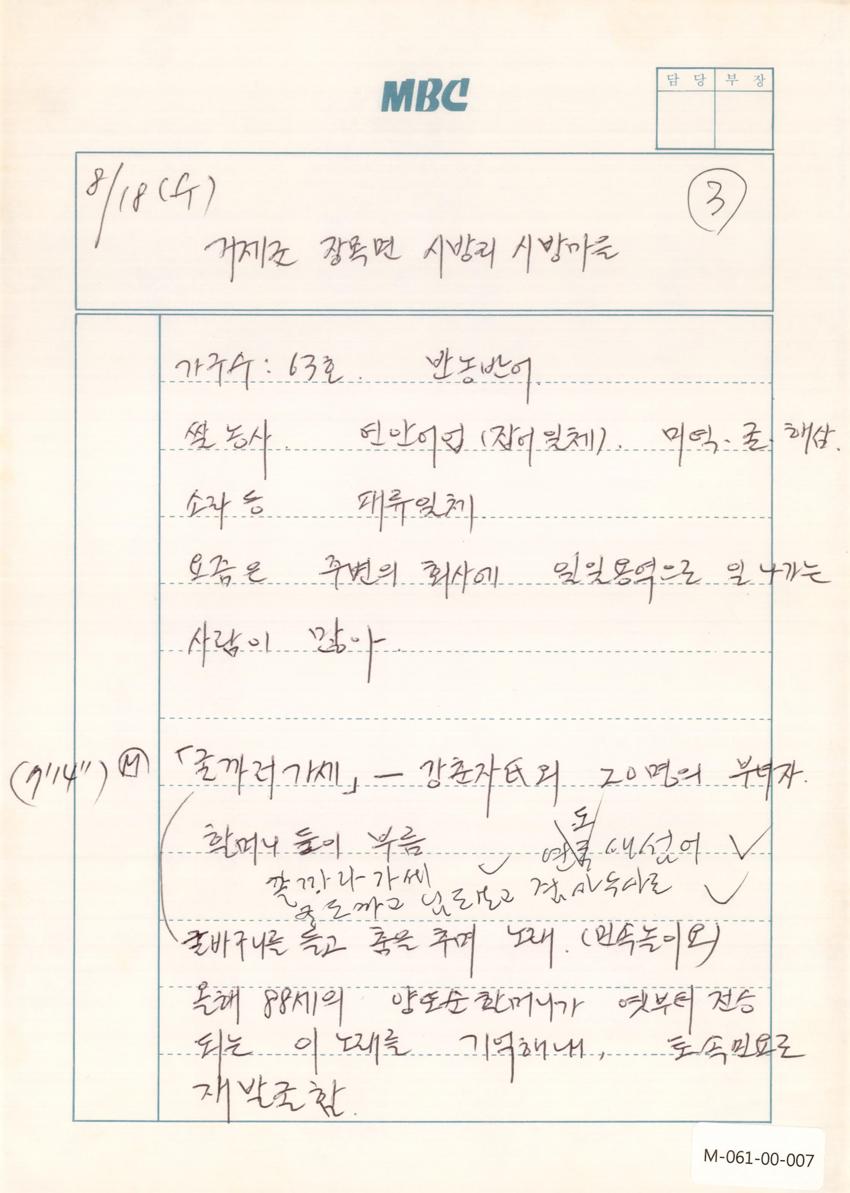 MBC
담당 부장
8/18(수)
③
거제군 장목면 시방리 시방마을
가구수: 63호. 반농반어.
쌀농사. 연안어업(잡어일체). 미역·굴·해삼.
소라 등 패류일체.
요즘은 주변의 회사에 일일용역으로 일 나가는
사람이 많아.
(7'14") Ⓜ 「굴까러 가세」 — 강춘자氏외 20명의 부녀자.
도
할머니들이 부름 새섬에
굴까라 가세
굴도까고 님도보고
굴바구니를 들고 춤을 추며 노래. (민속놀이요)
올해 88세의 양또순할머니가 옛부터 전승
되는 이 노래를 기억해내, 토속민요로
재발굴함.
M-061-00-007